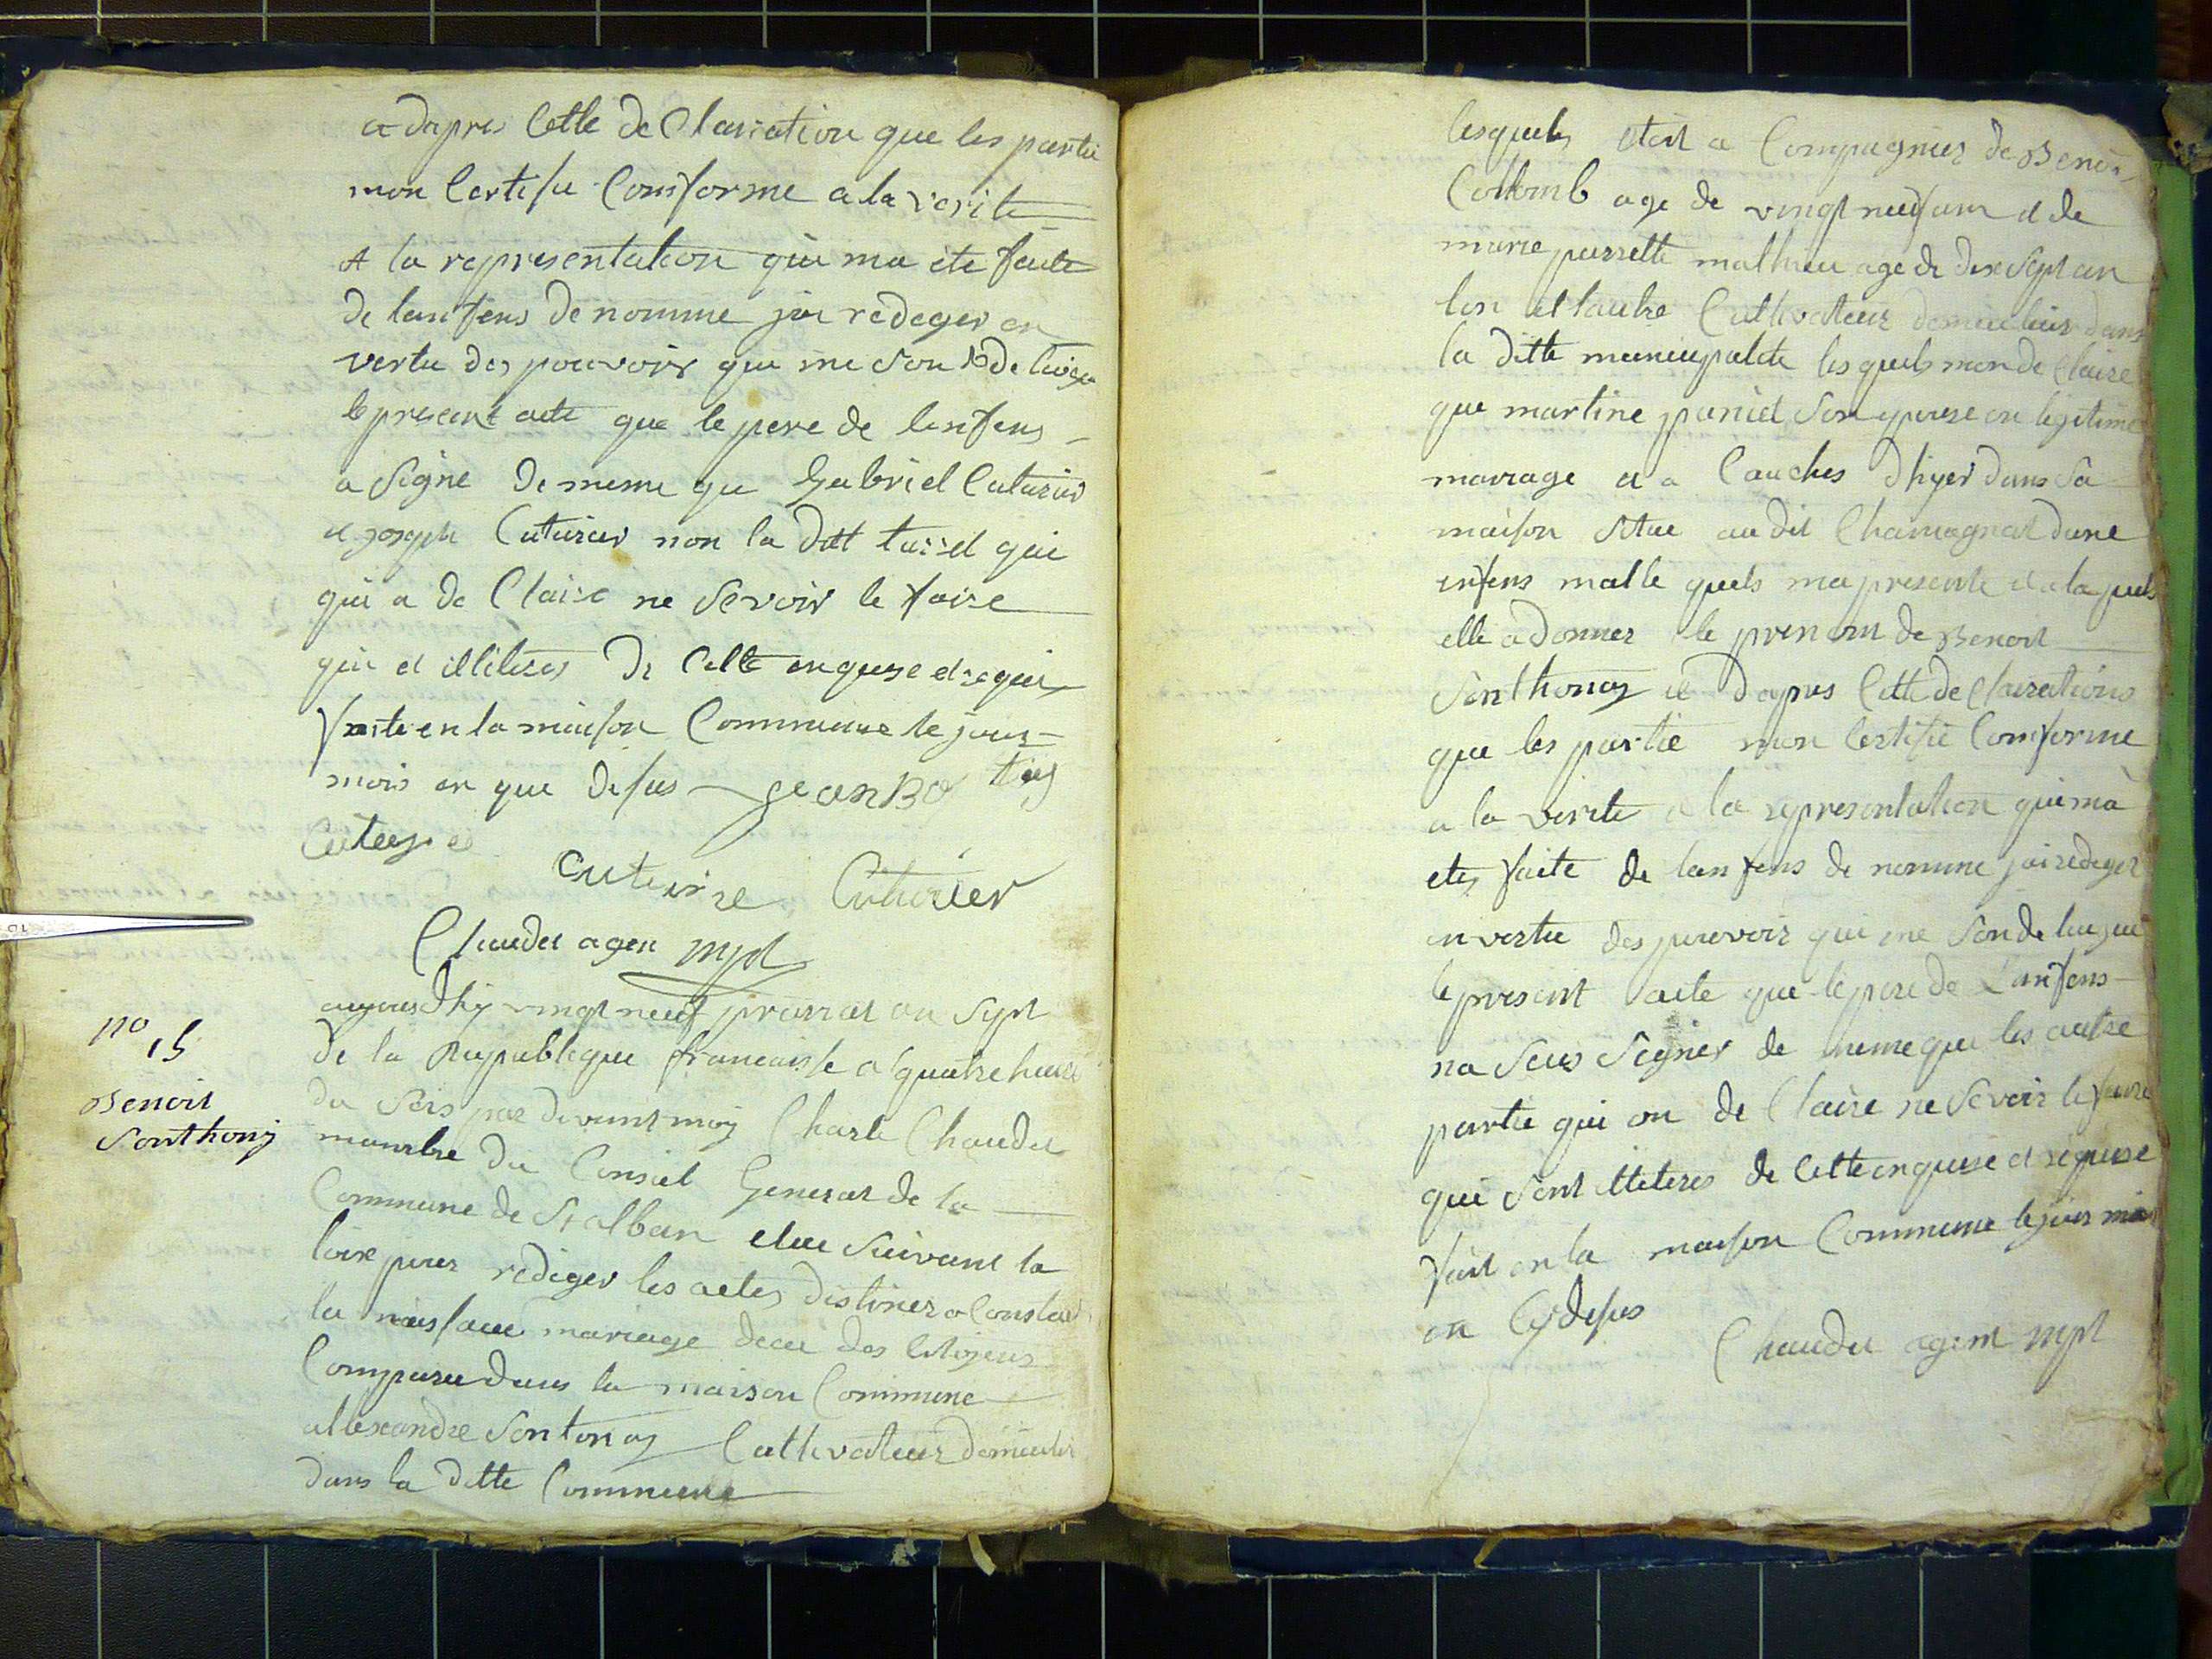 a dapres Cette de Claration que les partie
mon Certifie Comforme a la verite
et la representation qui ma ete faite
de lanfens denomme jai redeger en
vertu des pouvoir qui me son
le present acte que le pere de lenfens
a Signe de meme que Gabriel Cuturier
et joseph Cuturier non la ditt tarret qui
qui a de Claire ne Sevoir le faire
qui et illiteres de Cette enquese et requi
faite en la maison Commune le jour
mois en que desus jean Ba tis
Cuture Cuturier
Chaudet agen mpl
no 15
Benoit
Sonthony
aujourdhy vingt neuf prairial an Sept
de la Republeque francaisse a quatre heure
du Soir par devant moy Charle Chaudet
mambre du Consiel General de la
Commune de St alban elue Suivant la
loix pour rediger les actes distinez a Constater
la naissance mariage deces des Citoyens
Comparu dans la maison Commune
allexandre Sontonay Cultivateur
dans la ditte Commune
lesquels etoit a Compagniez de Benoit
Collomb age de vingt neuf ans et de
marie perrette mathieu age de dix Sept an
lun et lautre Cultivateur dans
la ditte municipalite lesquels mon de Claire
que martine paniet Son epouse en legitime
mariage et a Couches dhyer dans Sa
maison Situe au dit Chamagnat dune
enfens malle quels ma presente et a la quels
elle a donner le prenom de Benoit
Sonthonay et dapres Cette de Clairations
que les partie mon Certifie Comforme
a la verite et la representation qui ma
etes faite de lanfens de nomme jai redeger
en vertue des pouvoir qui me Son
le present acte que le pere de Lanfens
na Seus Signer de meme que les autre
partie qui on de Claire ne Sevoir le faire
qui Sont illiteres de Cette enquise et requise
fait en la maison Commune le jour moi
an Cy desus
Chaudet agent mpl